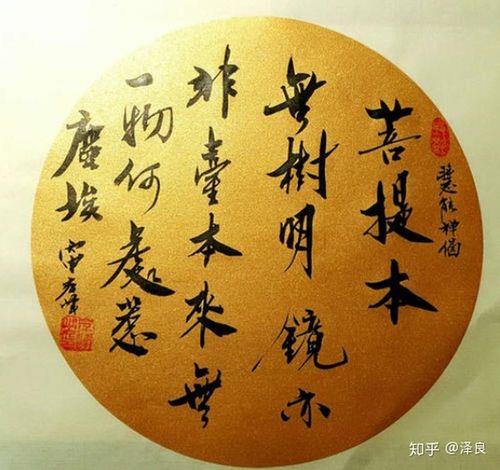 慧能禅偈
菩提本
無樹明鏡亦
非臺本來無
一物何處惹
塵埃
知乎 @泽良